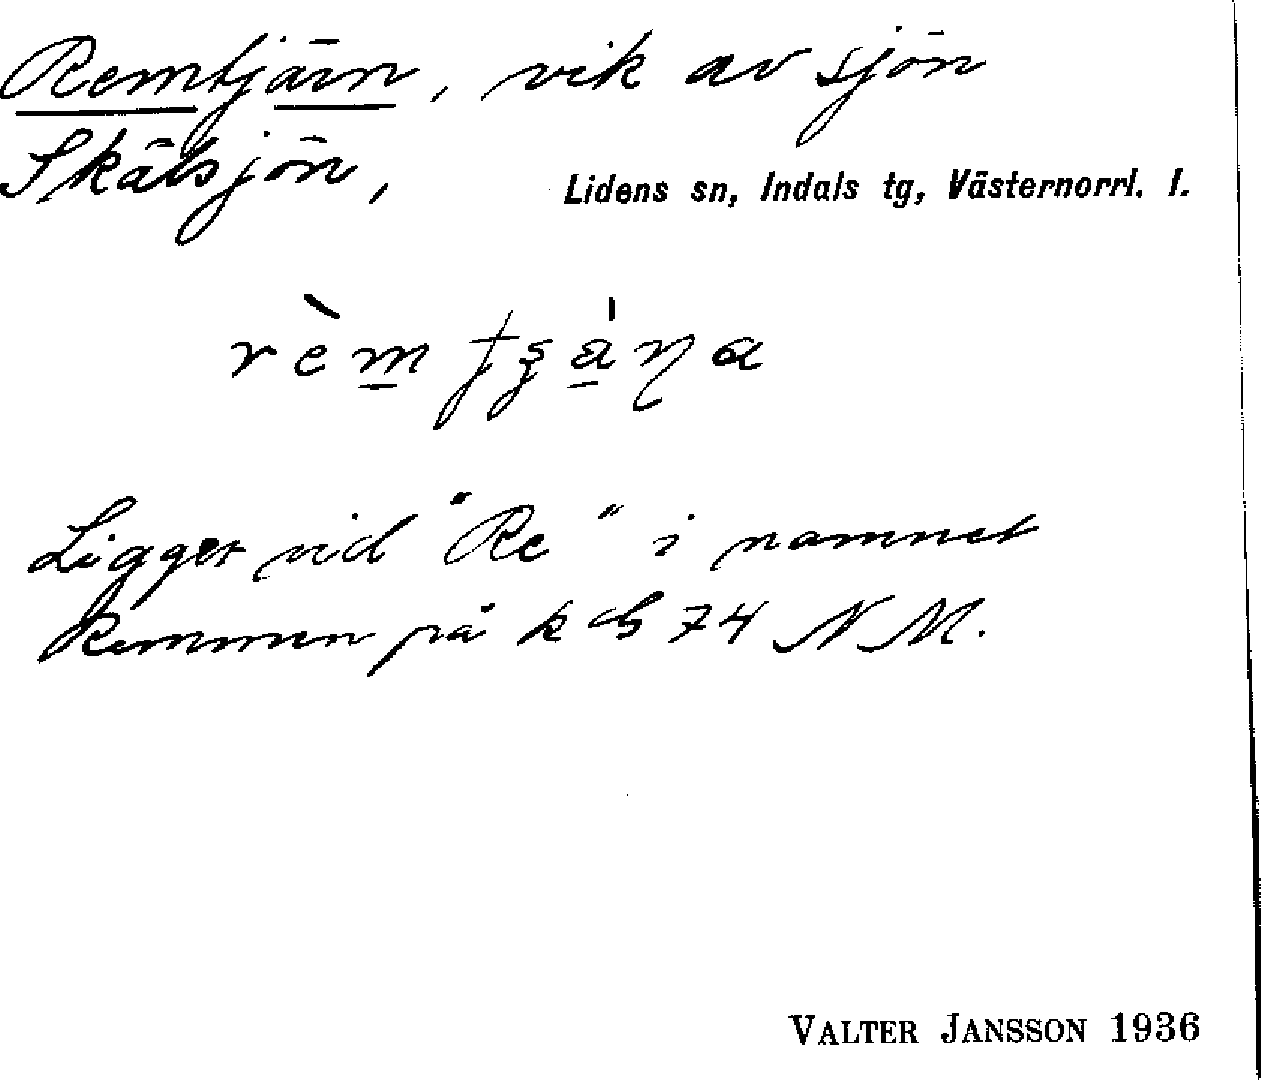 Remtjärn, vik av sjön
Skälsjön,
Lidens sn, Indals tg, Västernorrl. l.
Ligger vid "Re" i namnet
Remmen på k G 74 N M.
VALTER JANSSON 1936